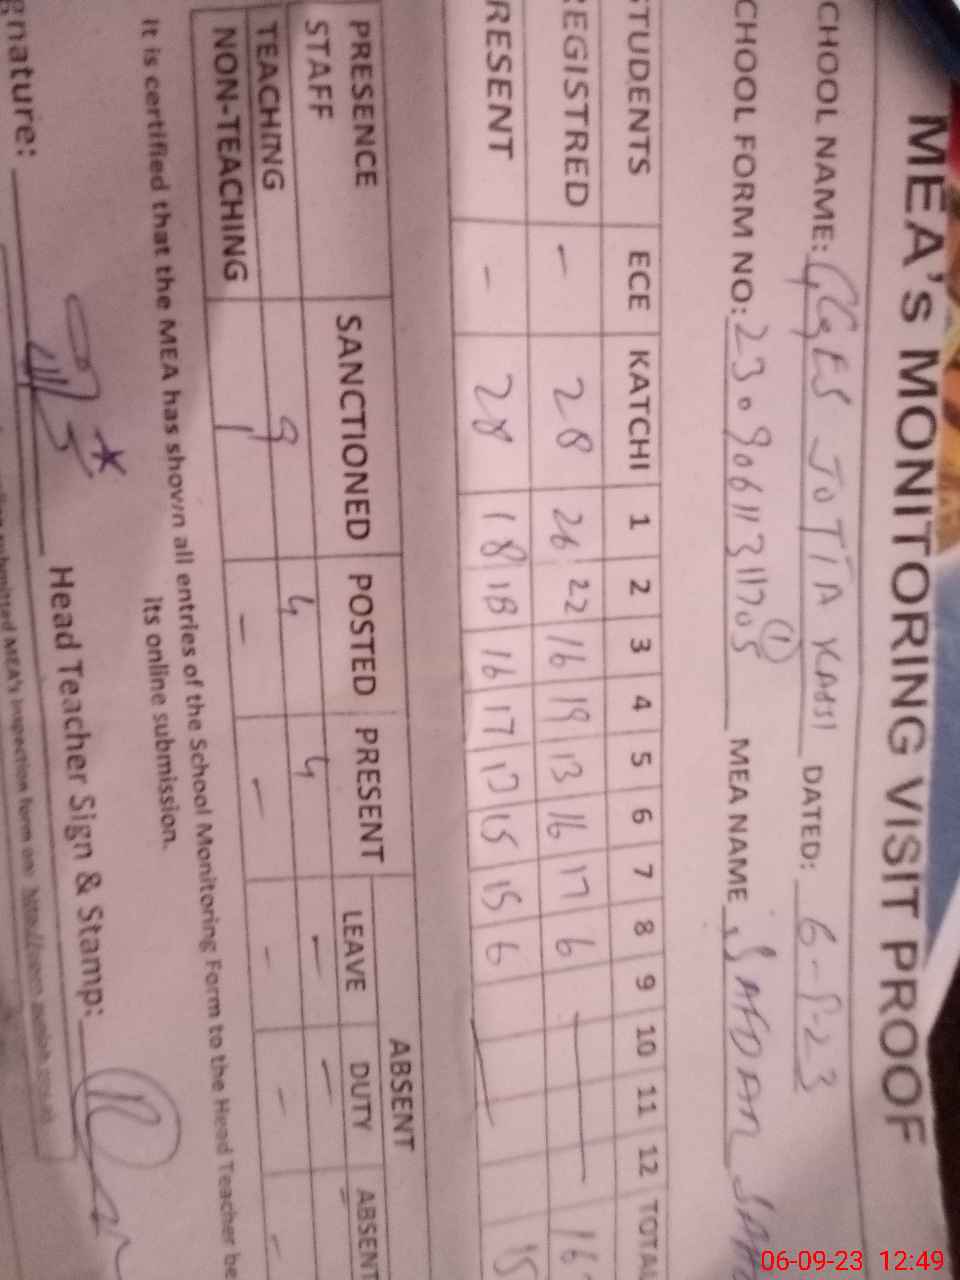 MEA's MONITORING VISIT PROOF
CHOOL NAME: GGES JOTIA KASSI DATED: 6-9-23
CHOOL FORM NO: 230906113111705 MEA NAME SAFDAR
STUDENTS ECE KATCHI 1 2 3 4 5 6 7 8 9 10 11 12 TOTAL
EGISTRED - 28 26 22 16 19 13 16 17 6
RESENT - 28 18 18 16 17 13 15 15 6
PRESENCE SANCTIONED POSTED PRESENT ABSENT
STAFF LEAVE DUTY ABSENT
TEACHING 9 4 4 - -
NON-TEACHING 1 - - - - -
It is certified that the MEA has shown all entries of the School Monitoring Form to the Head Teacher be
its online submission.
gnature: Head Teacher Sign & Stamp:
submitted MEA's inspection form on:
06-09-23 12:49